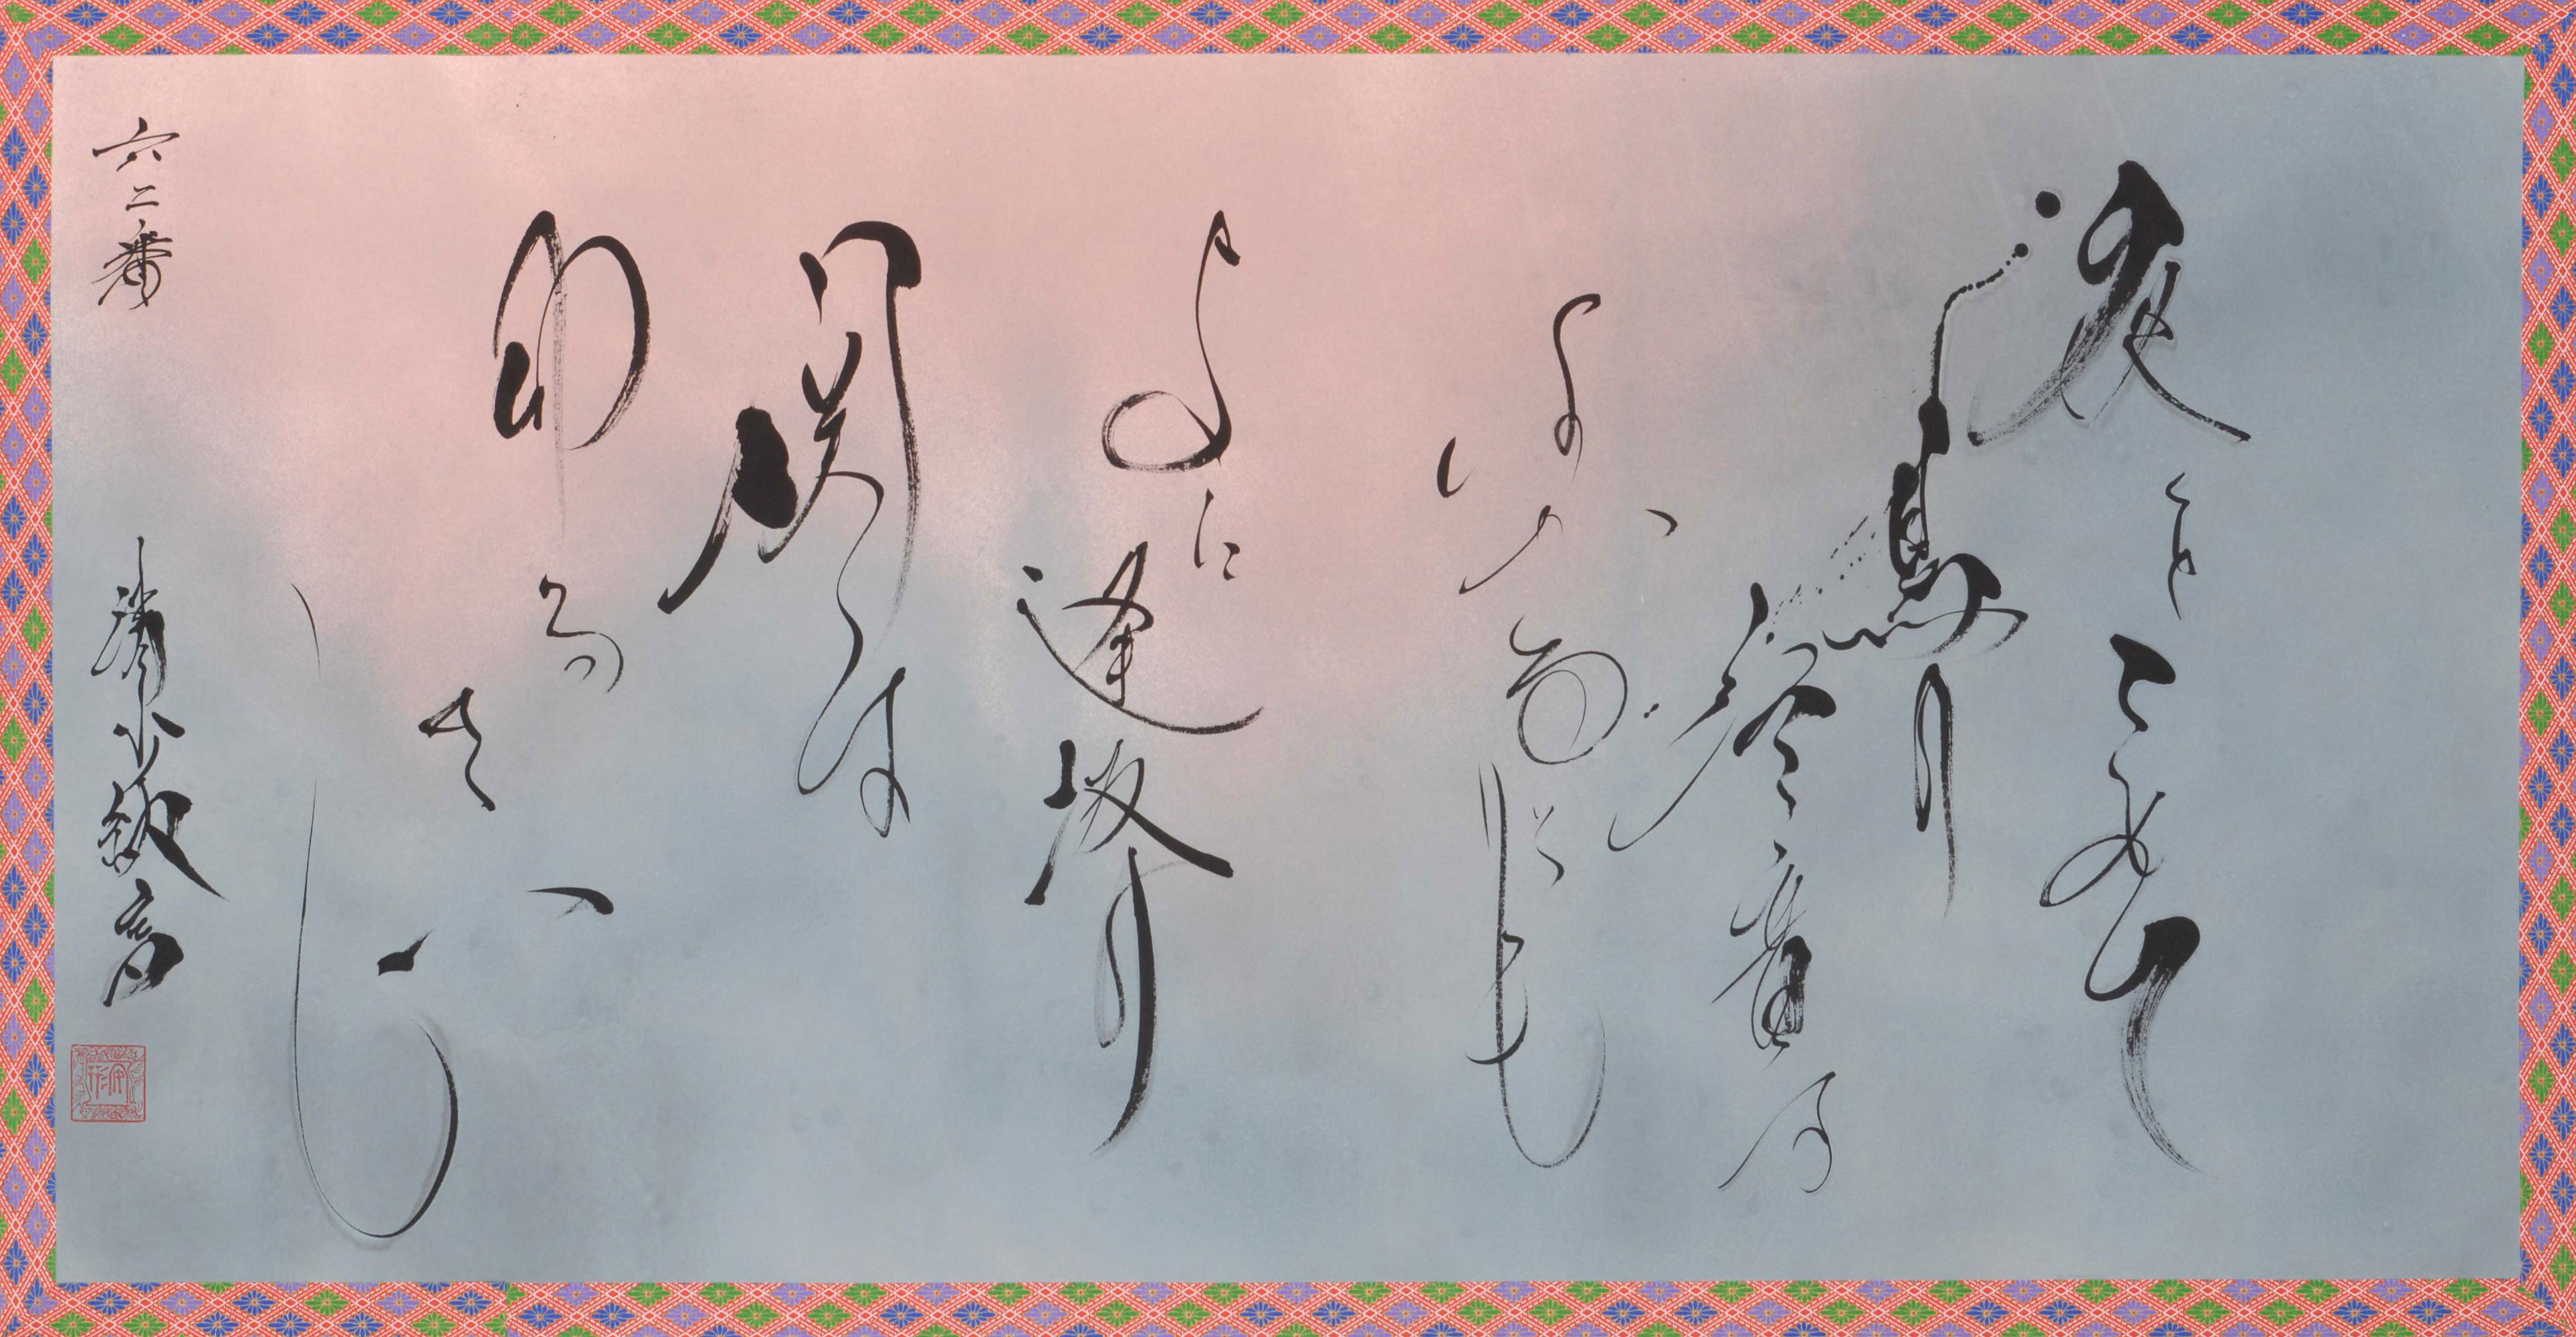 夜をこめて
鳥の
空音は
はかるとも
よに逢坂の
関は
ゆる
さじ
六二番 清少納言